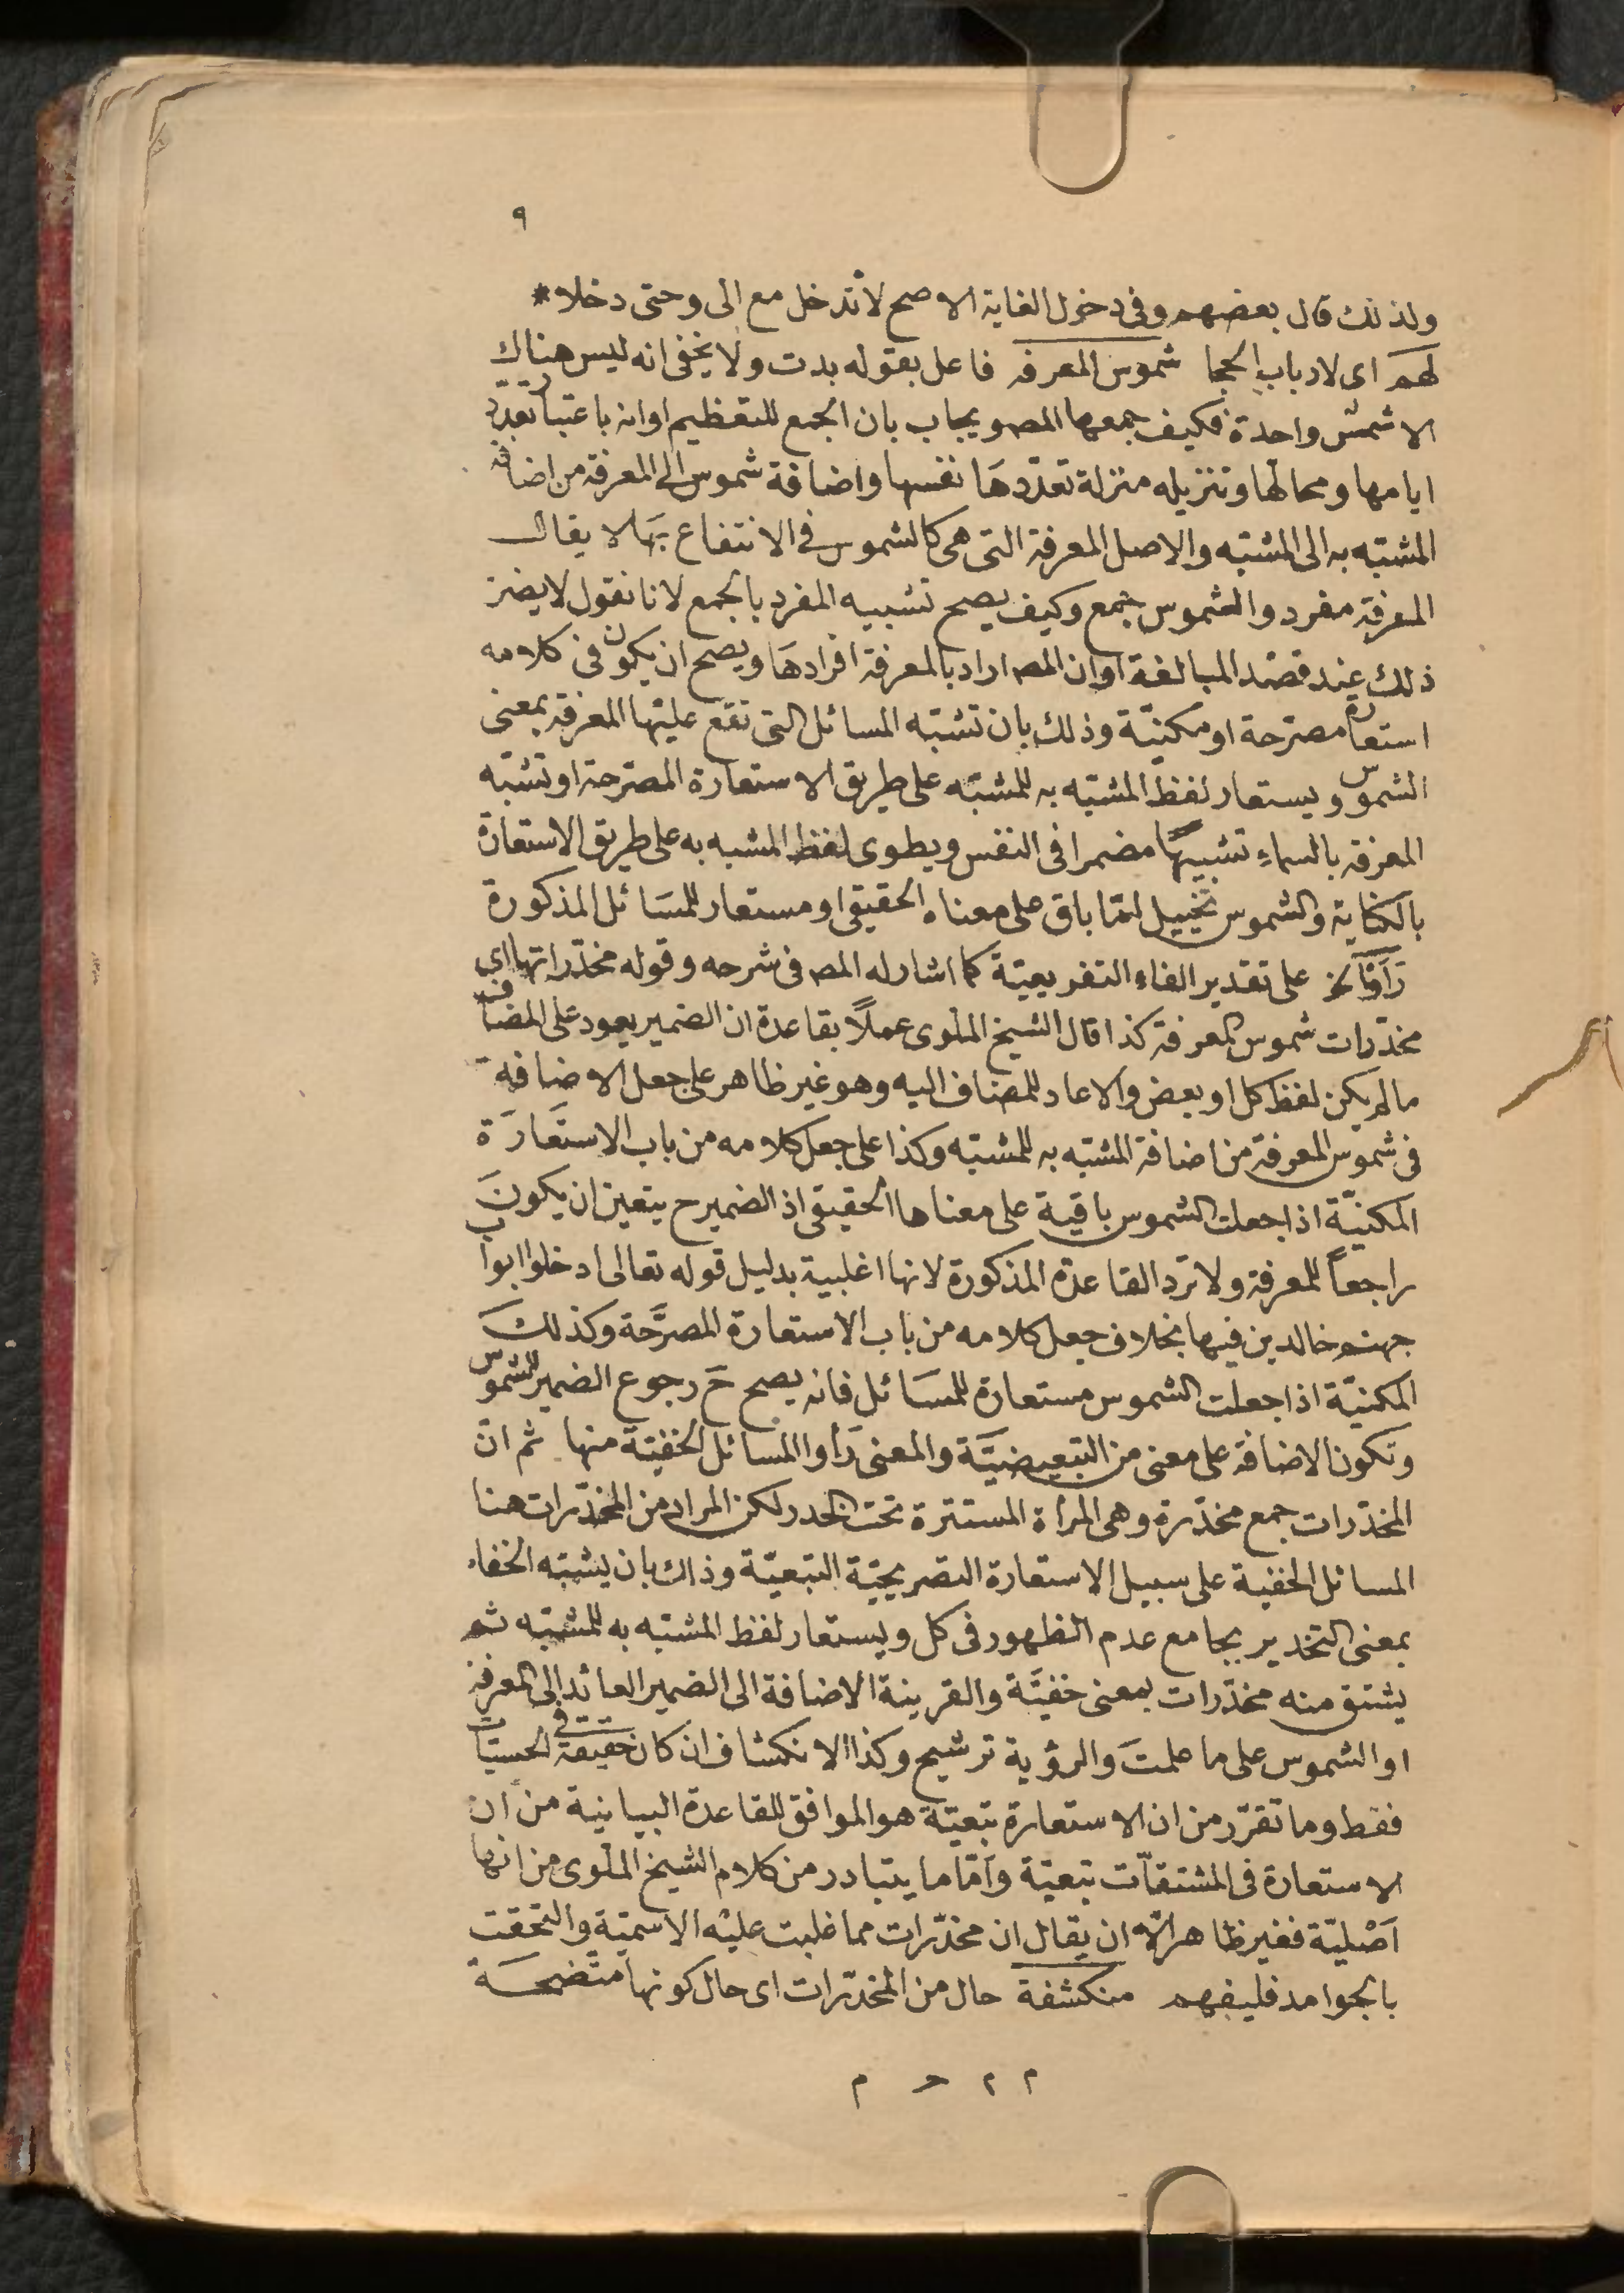 ٩
ولذلك قال بعضهم وفى دخول الغاية الاصح لا تدخل مع الى وحتى دخلا *
لهم اى لارباب الحجا شموس المعرفه فاعل بقوله بدت ولا يخفى انه ليس هناك
الا شمس واحدة فكيف جمعها المص ويجاب بان الجمع للتعظيم او انه باعتبار تعدد
ايامها ومحالها وتنزيله منزلة تعدّدها نفسها واضافة شموس الى المعرفة من اضافة
المشبّه به الى المشبّه والاصل المعرفة التى هى كالشموس فى الانتفاع بها لا يقال
المعرفة مفرد والشموس جمع وكيف يصح تشبيه المفرد بالجمع لانا نقول لا يضر
ذلك عند قصد المبالغة او ان المص اراد بالمعرفة افرادها ويصح ان يكون فى كلامه
استعارة مصرّحة او مكنيّة وذلك بان تشبّه المسائل التى تقع عليها المعرفة بمعنى
الشموس ويستعار لفظ المشبّه به للمشبّه على طريق الاستعارة المصرّحة او تشبّه
المعرفة بالسماء تشبيهًا مضمرا فى النفس ويطوى لفظ المشبه به على طريق الاستعارة
بالكناية والشموس تخييل امّا باق على معناه الحقيقى او مستعار للمسائل المذكورة
رَأَوْا الخ على تقدير الفاء التفريعيّة كما اشار له المص فى شرحه وقوله مخدّراتها اى
مخدّرات شموس المعرفة كذا قال الشيخ الملوى عملاً بقاعدة ان الضمير يعود على المضاف
ما لم يكن لفظ كل او بعض والا عاد للمضاف اليه وهو غير ظاهر على جعل الاضافة
فى شموس المعرفة من اضافة المشبّه به للمشبّه وكذا على جعل كلامه من باب الاستعارة
المكنيّة اذا جعلت الشموس باقية على معناها الحقيقى اذ الضمير ح يتعين ان يكون
راجعاً للمعرفة ولا ترد القاعدة المذكورة لانها اغلبية بدليل قوله تعالى ادخلوا ابواب
جهنم خالدين فيها بخلاف جعل كلامه من باب الاستعارة المصرّحة وكذلك
المكنيّة اذا جعلت الشموس مستعارة للمسائل فانه يصح ح رجوع الضمير للشموس
وتكون الاضافة على معنى من التبعيضيّة والمعنى رأوا المسائل الخفيّة منها ثم ان
المخدّرات جمع مخدّرة وهى المرأة المستترة تحت الخدر لكن المراد من المخدّرات هنا
المسائل الخفية على سبيل الاستعارة التصريحيّة التبعيّة وذاك بان يشبّه الخفاء
بمعنى التخدير بجامع عدم الظهور فى كل ويستعار لفظ المشبّه به للمشبّه ثم
يشتق منه مخدّرات بمعنى خفيّة والقرينة الاضافة الى الضمير العائد الى المعرفة
او الشموس على ما علمت والرؤية ترشيح وكذا الانكشاف ان كان حقيقة فى الحسيّات
فقط وما تقرّر من ان الاستعارة تبعيّة هو الموافق للقاعدة البيانية من ان
الاستعارة فى المشتقّات تبعيّة وأمّا ما يتبادر من كلام الشيخ الملوى من انها
اَصْليّة فغير ظاهر الّا ان يقال ان مخدّرات مما غلبت عليه الاسميّة والتحقت
بالجوامد فليفهم منكشفة حال من المخدّرات اى حال كونها متّضحة